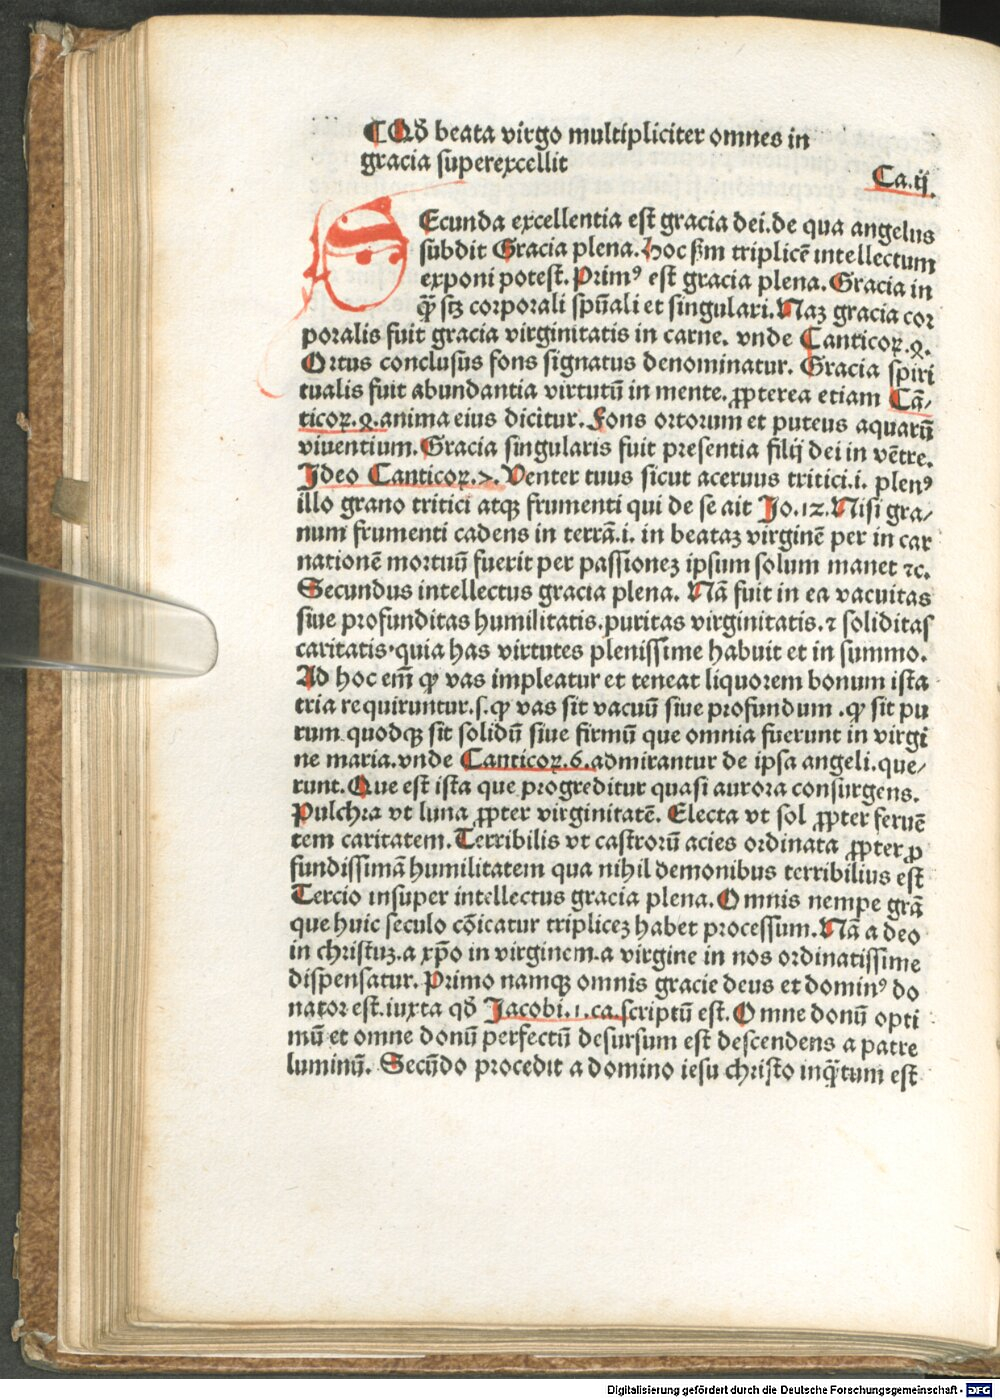 ¶ Qđ beata virgo multipliciter omnes in
gracia superexcellit
Ca.ij.
SEcunda excellentia est gracia dei.de qua angelus
subdit Gracia plena.Hoc ẜm triplicē intellectum
exponi potest.Primꝰ est gracia plena.Gracia in
qͣ̄ scꝫ corporali spūali et singulari.Naꝫ gracia cor
poralis fuit gracia virginitatis in carne. vnde Canticoꝝ.4.
Ortus conclusus fons signatus denominatur. Gracia spiri
tualis fuit abundantia virtutū in mente.ꝓpterea etiam Cā/
ticoꝝ.4.anima eius dicitur.Fons ortorum et puteus aquarū
viuentium.Gracia singularis fuit presentia filij dei in vētre.
Jdeo Canticoꝝ.7.Venter tuus sicut aceruus tritici.i. plenꝰ
illo grano tritici atqꝫ frumenti qui de se ait Jo.12.Nisi gra/
num frumenti cadens in terrā.i. in beataꝫ virginē per in car
nationē mortuū fuerit per passioneꝫ ipsum solum manet ⁊c.
Secundus intellectus gracia plena. Nā fuit in ea vacuitas
siue profunditas humilitatis.puritas virginitatis.⁊ soliditas
caritatis.quia has virtutes plenissime habuit et in summo.
Ad hoc em̄ ꝙ vas impleatur et teneat liquorem bonum ista
tria requiruntur.s.ꝙ vas sit vacuū siue profundum .ꝙ sit pu
rum.quodqꝫ sit solidū siue firmū que omnia fuerunt in virgi
ne maria.vnde Canticoꝝ.6.admirantur de ipsa angeli.que/
runt.Que est ista que progreditur quasi aurora consurgens.
Pulchra vt luna ꝓpter virginitatē. Electa vt sol ꝓpter feruē
tem caritatem.Terribilis vt castrorū acies ordinata ꝓpter ꝓ
fundissimā humilitatem qua nihil demonibus terribilius est
Tercio insuper intellectus gracia plena.Omnis nempe grā
que huic seculo cōicatur tripliceꝫ habet processum.Nā a deo
in christuꝫ.a xp̄o in virginem.a virgine in nos ordinatissime
dispensatur. Primo namqꝫ omnis gracie deus et dominꝰ do
nator est.iuxta qđ Jacobi.1.ca.scriptū est.Omne donū opti
mū et omne donū perfectū desursum est descendens a patre
luminū. Secūdo procedit a domino iesu christo inqͣ̄tum est
Digitalisierung gefördert durch die Deutsche Forschungsgemeinschaft - DFG